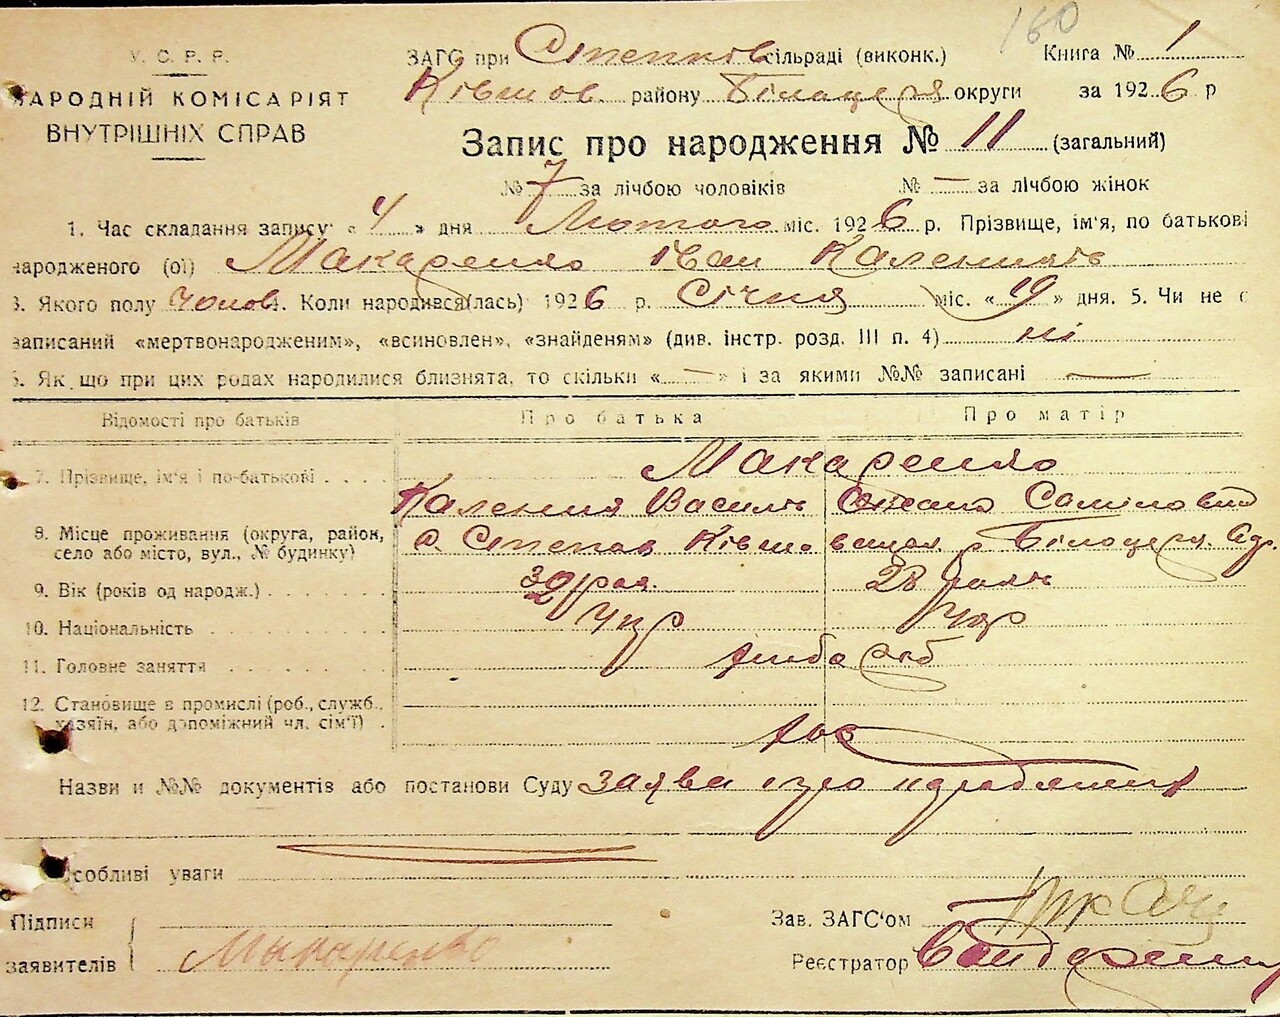 160
У. С. Р. Р.
НАРОДНІЙ КОМІСАРІЯТ
ВНУТРІШНІХ СПРАВ
ЗАГС при Степков сільраді (виконк.) Книга № 1
Ківшов. району Білоцерк округи за 1926 р
Запис про народження № 11 (загальний)
№ 7 за лічбою чоловіків № — за лічбою жінок
1. Час складання запису: « 4 » дня Лютого міс. 1926 р. Прізвище, ім'я, по батькові
народженого (ої) Макаренко Іван
3. Якого полу Чолов. 4. Коли народився(лась) 1926 р. Січня міс. « 19 » дня. 5. Чи не є
записаний «мертвонародженим», «всиновлен», «знайденям» (див. інстр. розд. III п. 4) ні
6. Як що при цих родах народилися близнята, то скільки « — » і за якими №№ записані —
Відомості про батьків Про батька Про матір
7. Прізвище, ім'я і по-батькові Макаренко
Каленик Василь Оксана
8. Місце проживання (округа, район, село або місто, вул., № будинку) с. Степок
9. Вік (років од народж.) 32 28
10. Національність Укр Укр
11. Головне заняття
12. Становище в промислі (роб., служб., хазяїн, або допоміжний чл. сім'ї)
Назви и №№ документів або постанови Суду заява про
Особливі уваги
Підписи Зав. ЗАГС'ом Ткач
заявителів Макаренко Реєстратор